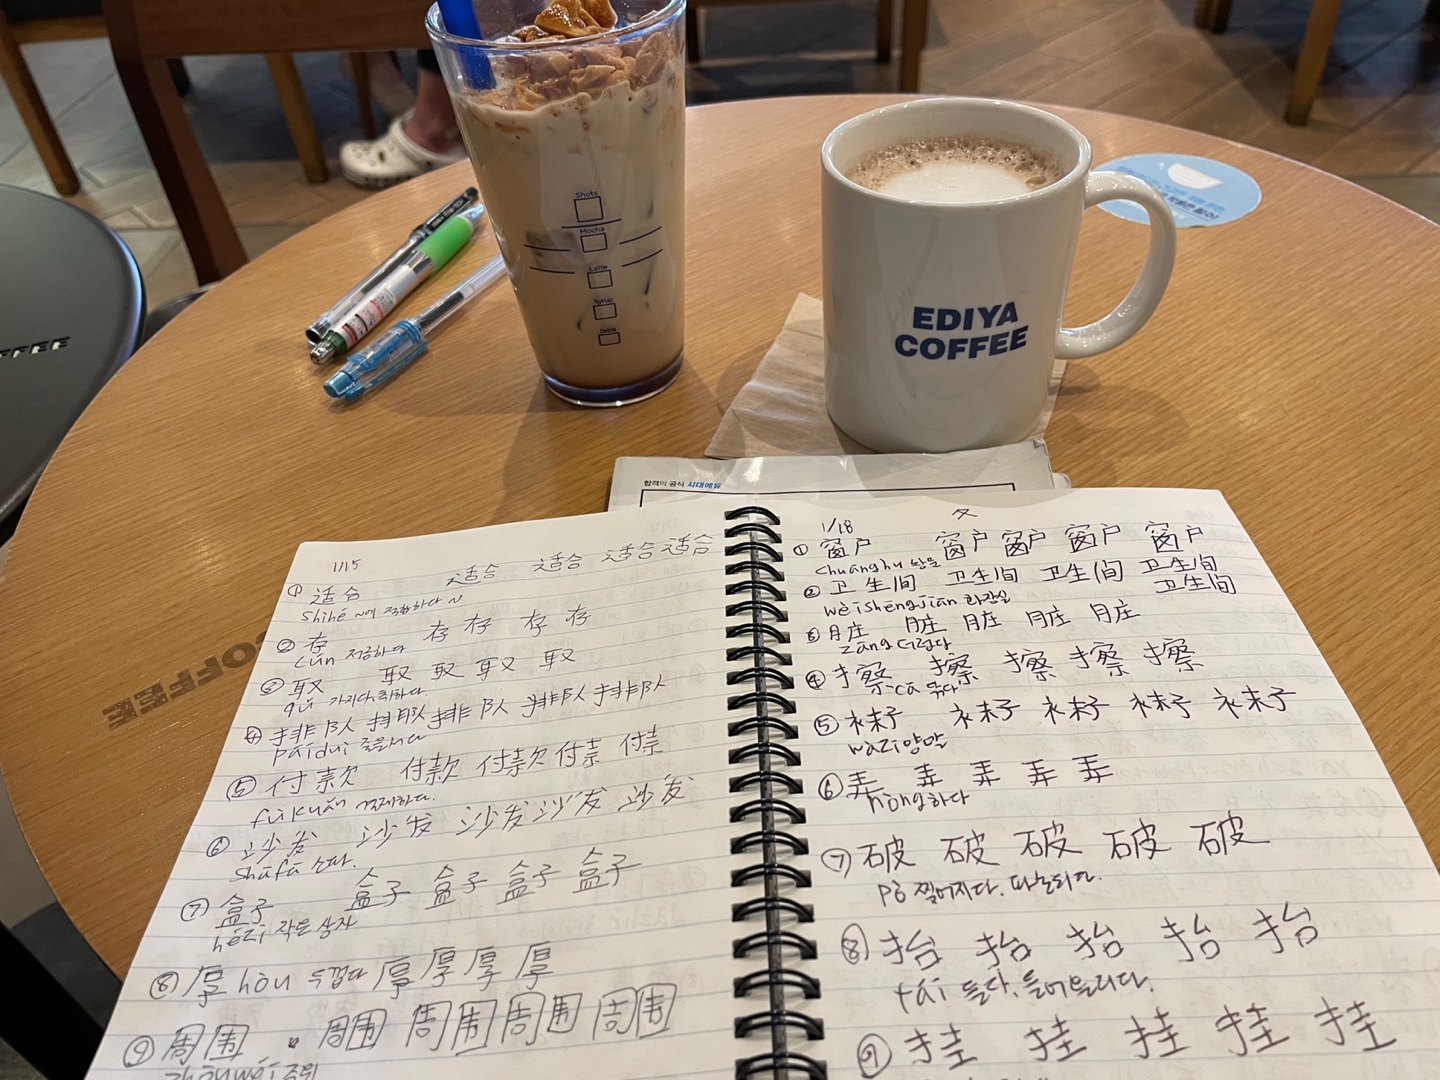 Shots
Mocha
Latte
Syrup
Drink
EDIYA
COFFEE
COFFEE
합격의 공식 시대에듀
1/15
① 适合 适合 适合 适合 适合
Shihé ~에 적합하다
② 存 存 存 存 存
cún 저금하다
③ 取 取 取 取 取
qǔ 가지다 취하다
④ 排队 排队 排队 排队 排队
páiduì 줄을서다
⑤ 付款 付款 付款 付款 付款
fùkuǎn
⑥ 沙发 沙发 沙发 沙发 沙发
shāfā 소파.
⑦ 盒子 盒子 盒子 盒子 盒子
hézi 작은 상자
⑧ 厚 hòu 두껍다 厚 厚 厚 厚
⑨ 周围 周围 周围 周围 周围
zhōuwéi 주위
1/18
① 窗户 窗户 窗户 窗户 窗户
chuānghu 창문
② 卫生间 卫生间 卫生间 卫生间
卫生间
wèishēngjiān 화장실
③ 脏 脏 脏 脏 脏
zāng 더럽다
④ 擦 擦 擦 擦 擦
cā 닦다
⑤ 袜子 袜子 袜子 袜子 袜子
wàzi 양말
⑥ 弄 弄 弄 弄 弄
nòng 하다
⑦ 破 破 破 破 破
pò 찢어지다. 파손되다.
⑧ 抬 抬 抬 抬 抬
tái 들다. 들어올리다.
⑨ 挂 挂 挂 挂 挂